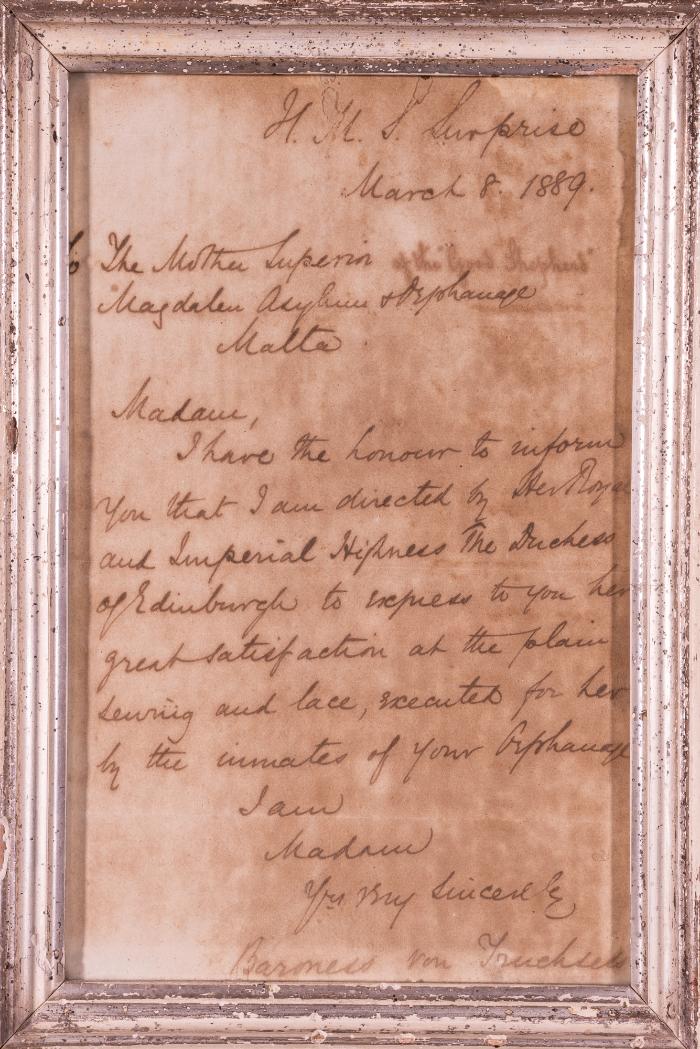 H. M. S. Surprise
March 8. 1889.
To The Mother Superior of the "Good Shepherd"
Magdalen Asylum & Orphanage
Malta
Madam,
I have the honour to inform
you that I am directed by Her Royal
and Imperial Highness The Duchess
of Edinburgh to express to you her
great satisfaction at the plain
sewing and lace, executed for her
by the inmates of your Orphanage
I am
Madam
Yrs very sincerely
Baroness von Truchsess